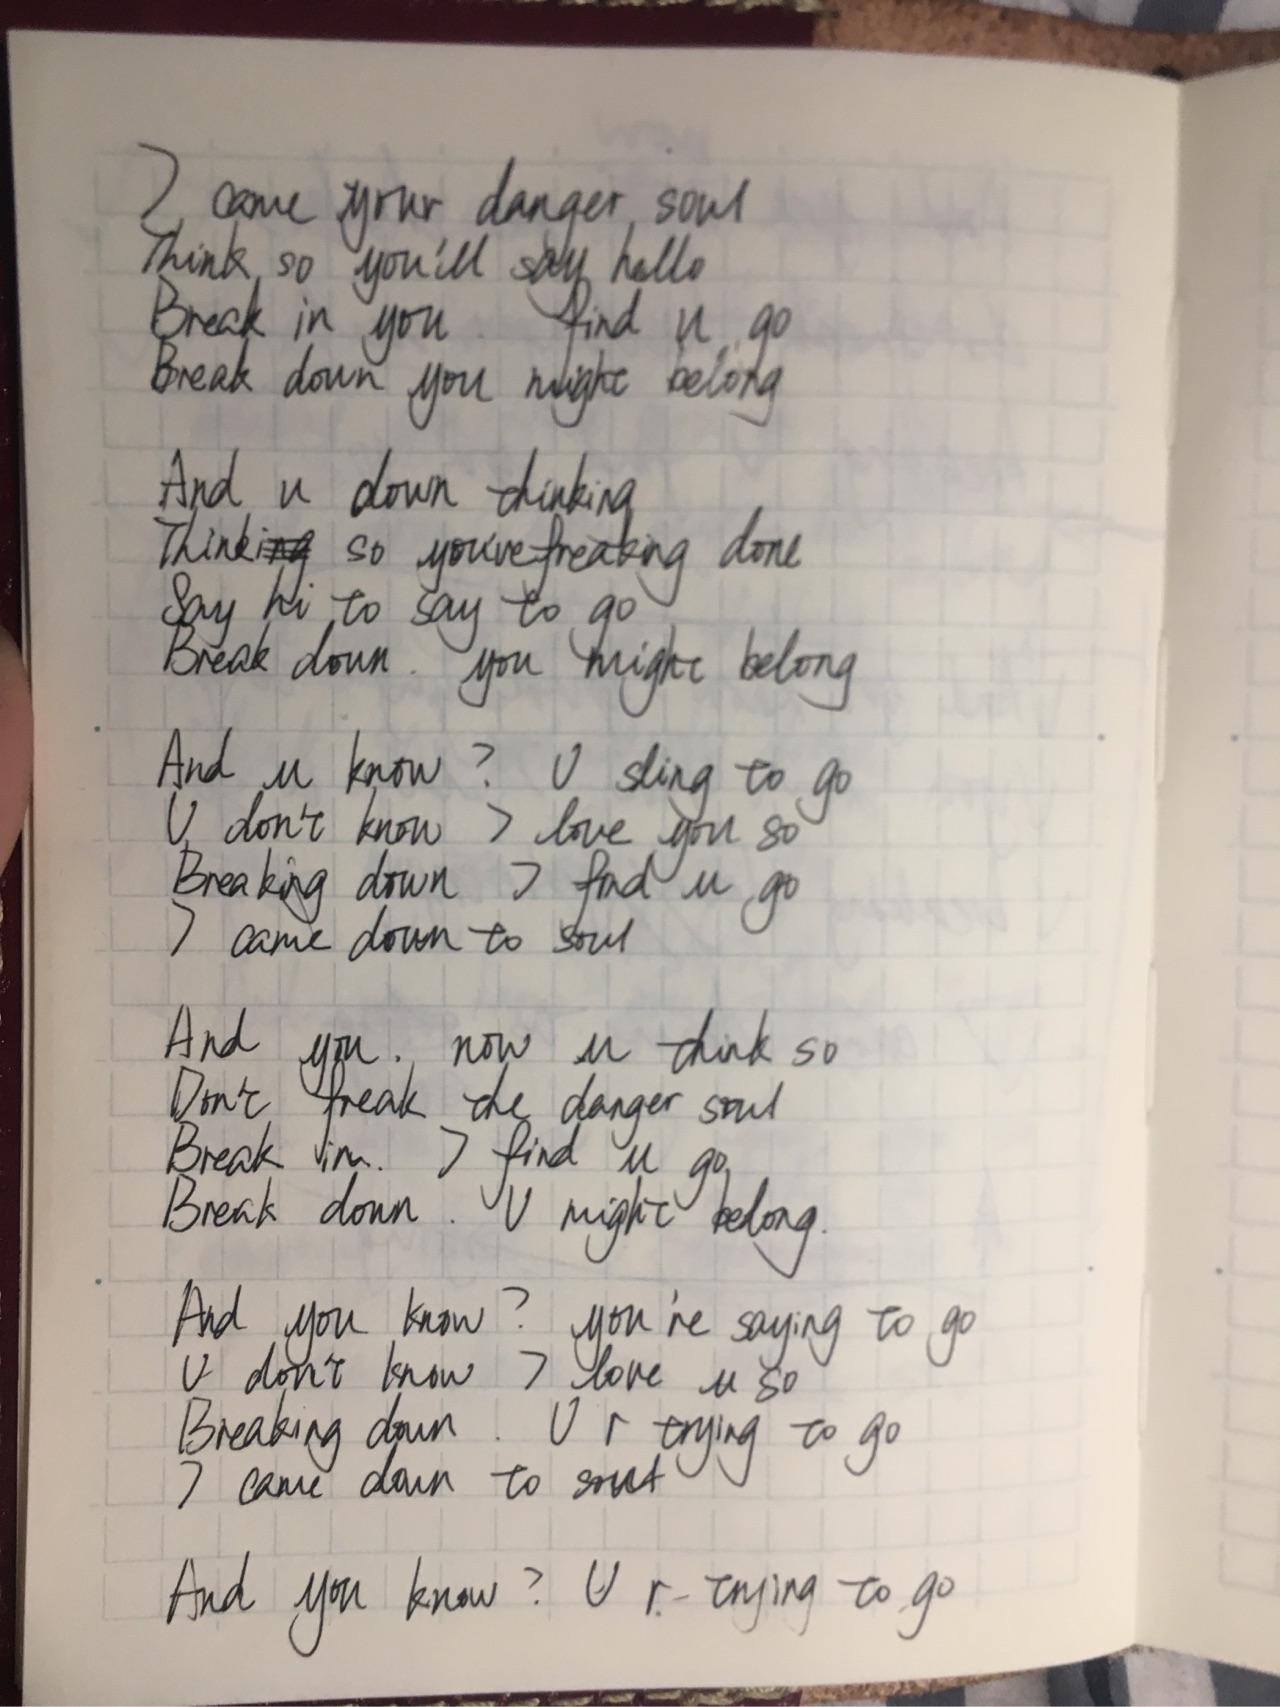 I came your danger soul
Think so you'll say hello
Break in you find u go
Break down you might belong
And u down thinking
Think so you've freaking done
Say hi to say to go
Break down. you might belong
And u know? U sling to go
U don't know I love you so
Breaking down I find u go
I came down to soul
And you. now u think so
Don't freak the danger soul
Break in. I find u go
Break down. U might belong.
And you know? you're saying to go
U don't know I love u so
Breaking down. U r trying to go
I came down to
And you know? U r trying to go